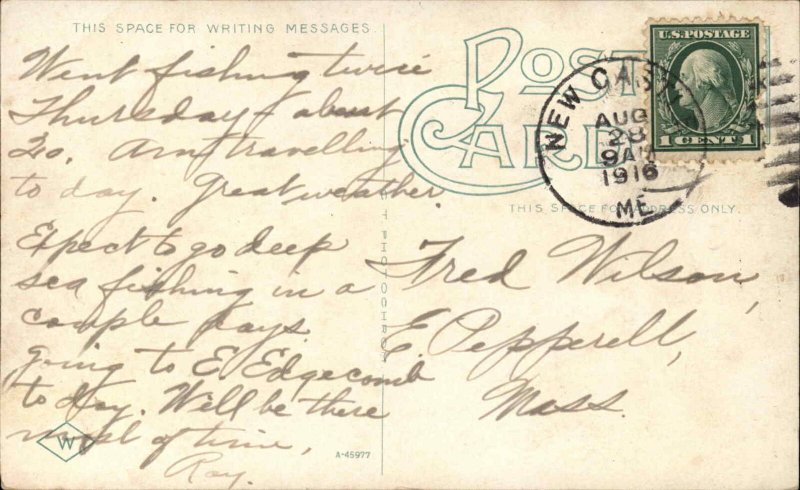 THIS SPACE FOR WRITING MESSAGES.
Went fishing twice
Thursday & about
20. Am travelling
to day. Great weather.
Expect to go deep
sea fishing in a
couple days.
going to E. Edgecomb
to day. Will be there
most of time,
Ray.
W
A-45977
C T PHOTOCHROM
POST CARD
THIS SPACE FOR ADDRESS ONLY.
U.S. POSTAGE
1 CENT 1
NEW
AUG
28
9 AM
1916
ME
Fred Wilson,
E. Pepperell,
Mass.